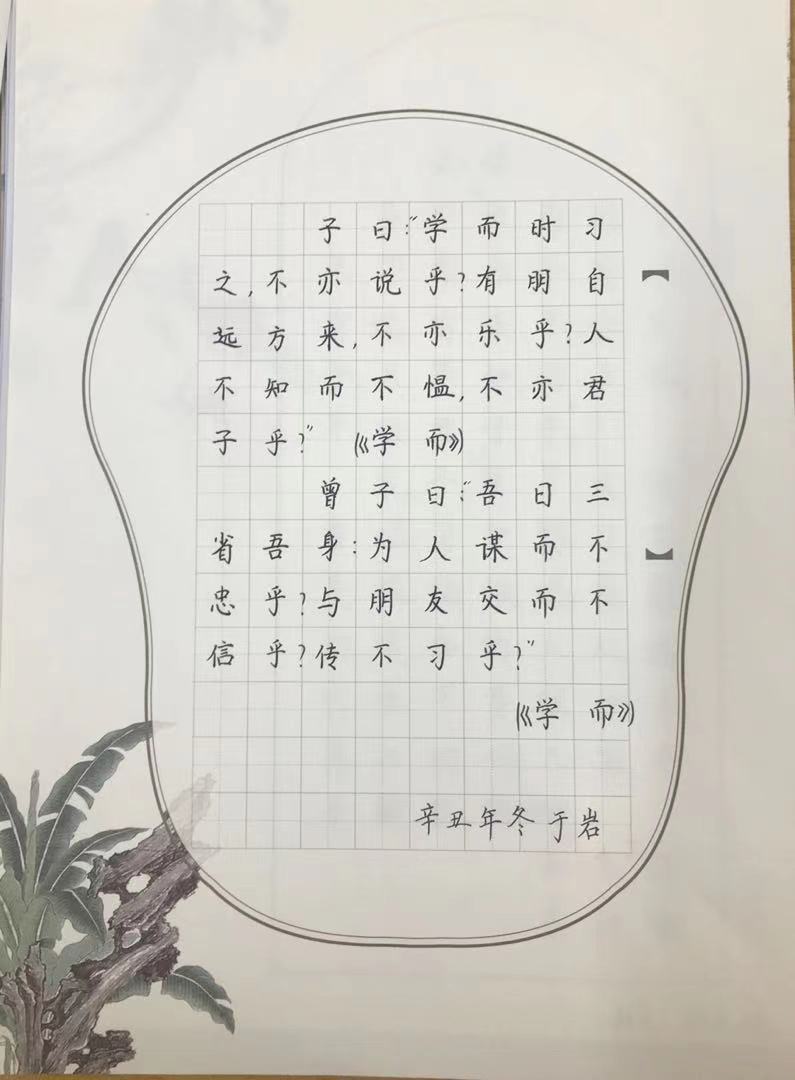 子曰：“学而时习
之，不亦说乎？有朋自
远方来，不亦乐乎？人
不知而不愠，不亦君
子乎？”（《学而》）
曾子曰：“吾日三
省吾身：为人谋而不
忠乎？与朋友交而不
信乎？传不习乎？”
（《学而》）
辛丑年冬 于岩
【
】